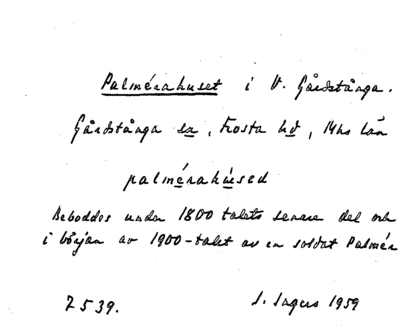 Palmérahuset i V. Gårdstånga.
Gårdstånga sn, Frosta hd, Mhs län
palmérahúsed
Beboddes under 1800 talets senare del och
i början av 1900-talet av en soldat Palmér
7539. S. Ingers 1959